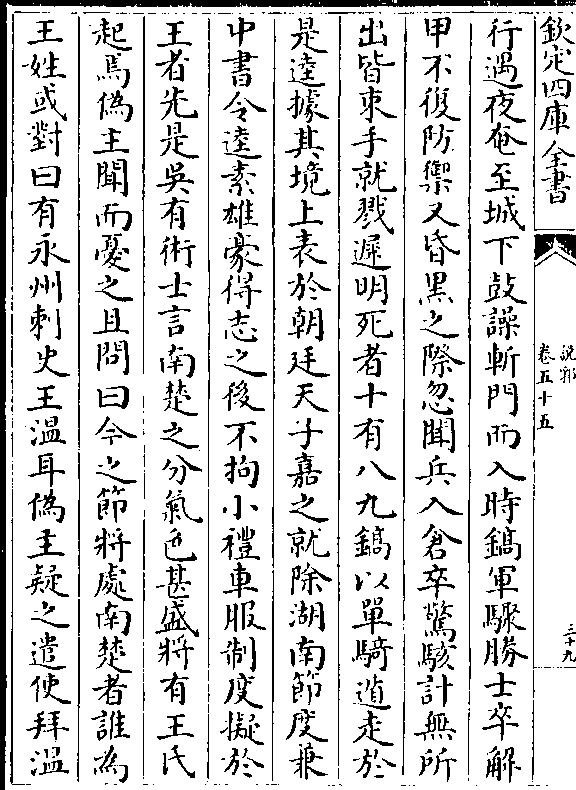 欽定四庫全書
說郛
卷五十五
三十九
行遇夜奄至城下鼓譟斬門而入時鎬軍驟勝士卒解
甲不復防禦又昏黒之際忽聞兵入倉卒驚駭計無所
出皆束手就戮遲明死者十有八九鎬以單騎遁走於
是逵據其境上表於朝廷天子嘉之就除湖南節度兼
中書令逵素雄豪得志之後不拘小禮車服制度擬於
王者先是吳有術士言南楚之分氣色甚盛將有王氏
起焉偽主聞而憂之且問曰今之節將處南楚者誰為
王姓或對曰有永州刺史王温耳偽主疑之遣使拜温